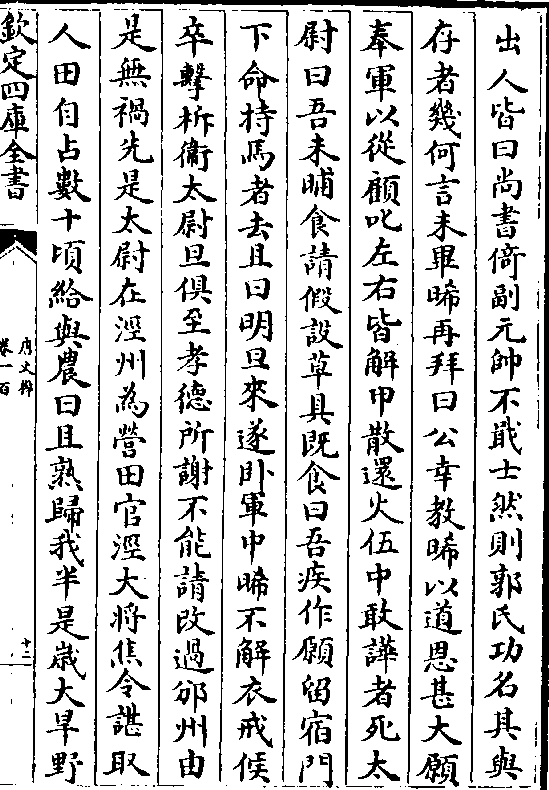 出人皆曰尚書倚副元帥不戢士然則郭氏功名其與
存者幾何言未畢晞再拜曰公幸教晞以道恩甚大願
奉軍以從顧叱左右皆解甲散還火伍中敢譁者死太
尉曰吾未晡食請假設草具既食曰吾疾作願留宿門
下命持馬者去且曰明旦來遂卧軍中晞不解衣戒候
卒擊柝衛太尉旦俱至孝德所謝不能請改過邠州由
是無禍先是太尉在涇州為營田官涇大將焦令諶取
人田自占數十頃給與農曰且熟歸我半是歳大旱野
欽定四庫全書
唐文粹
卷一百
十二